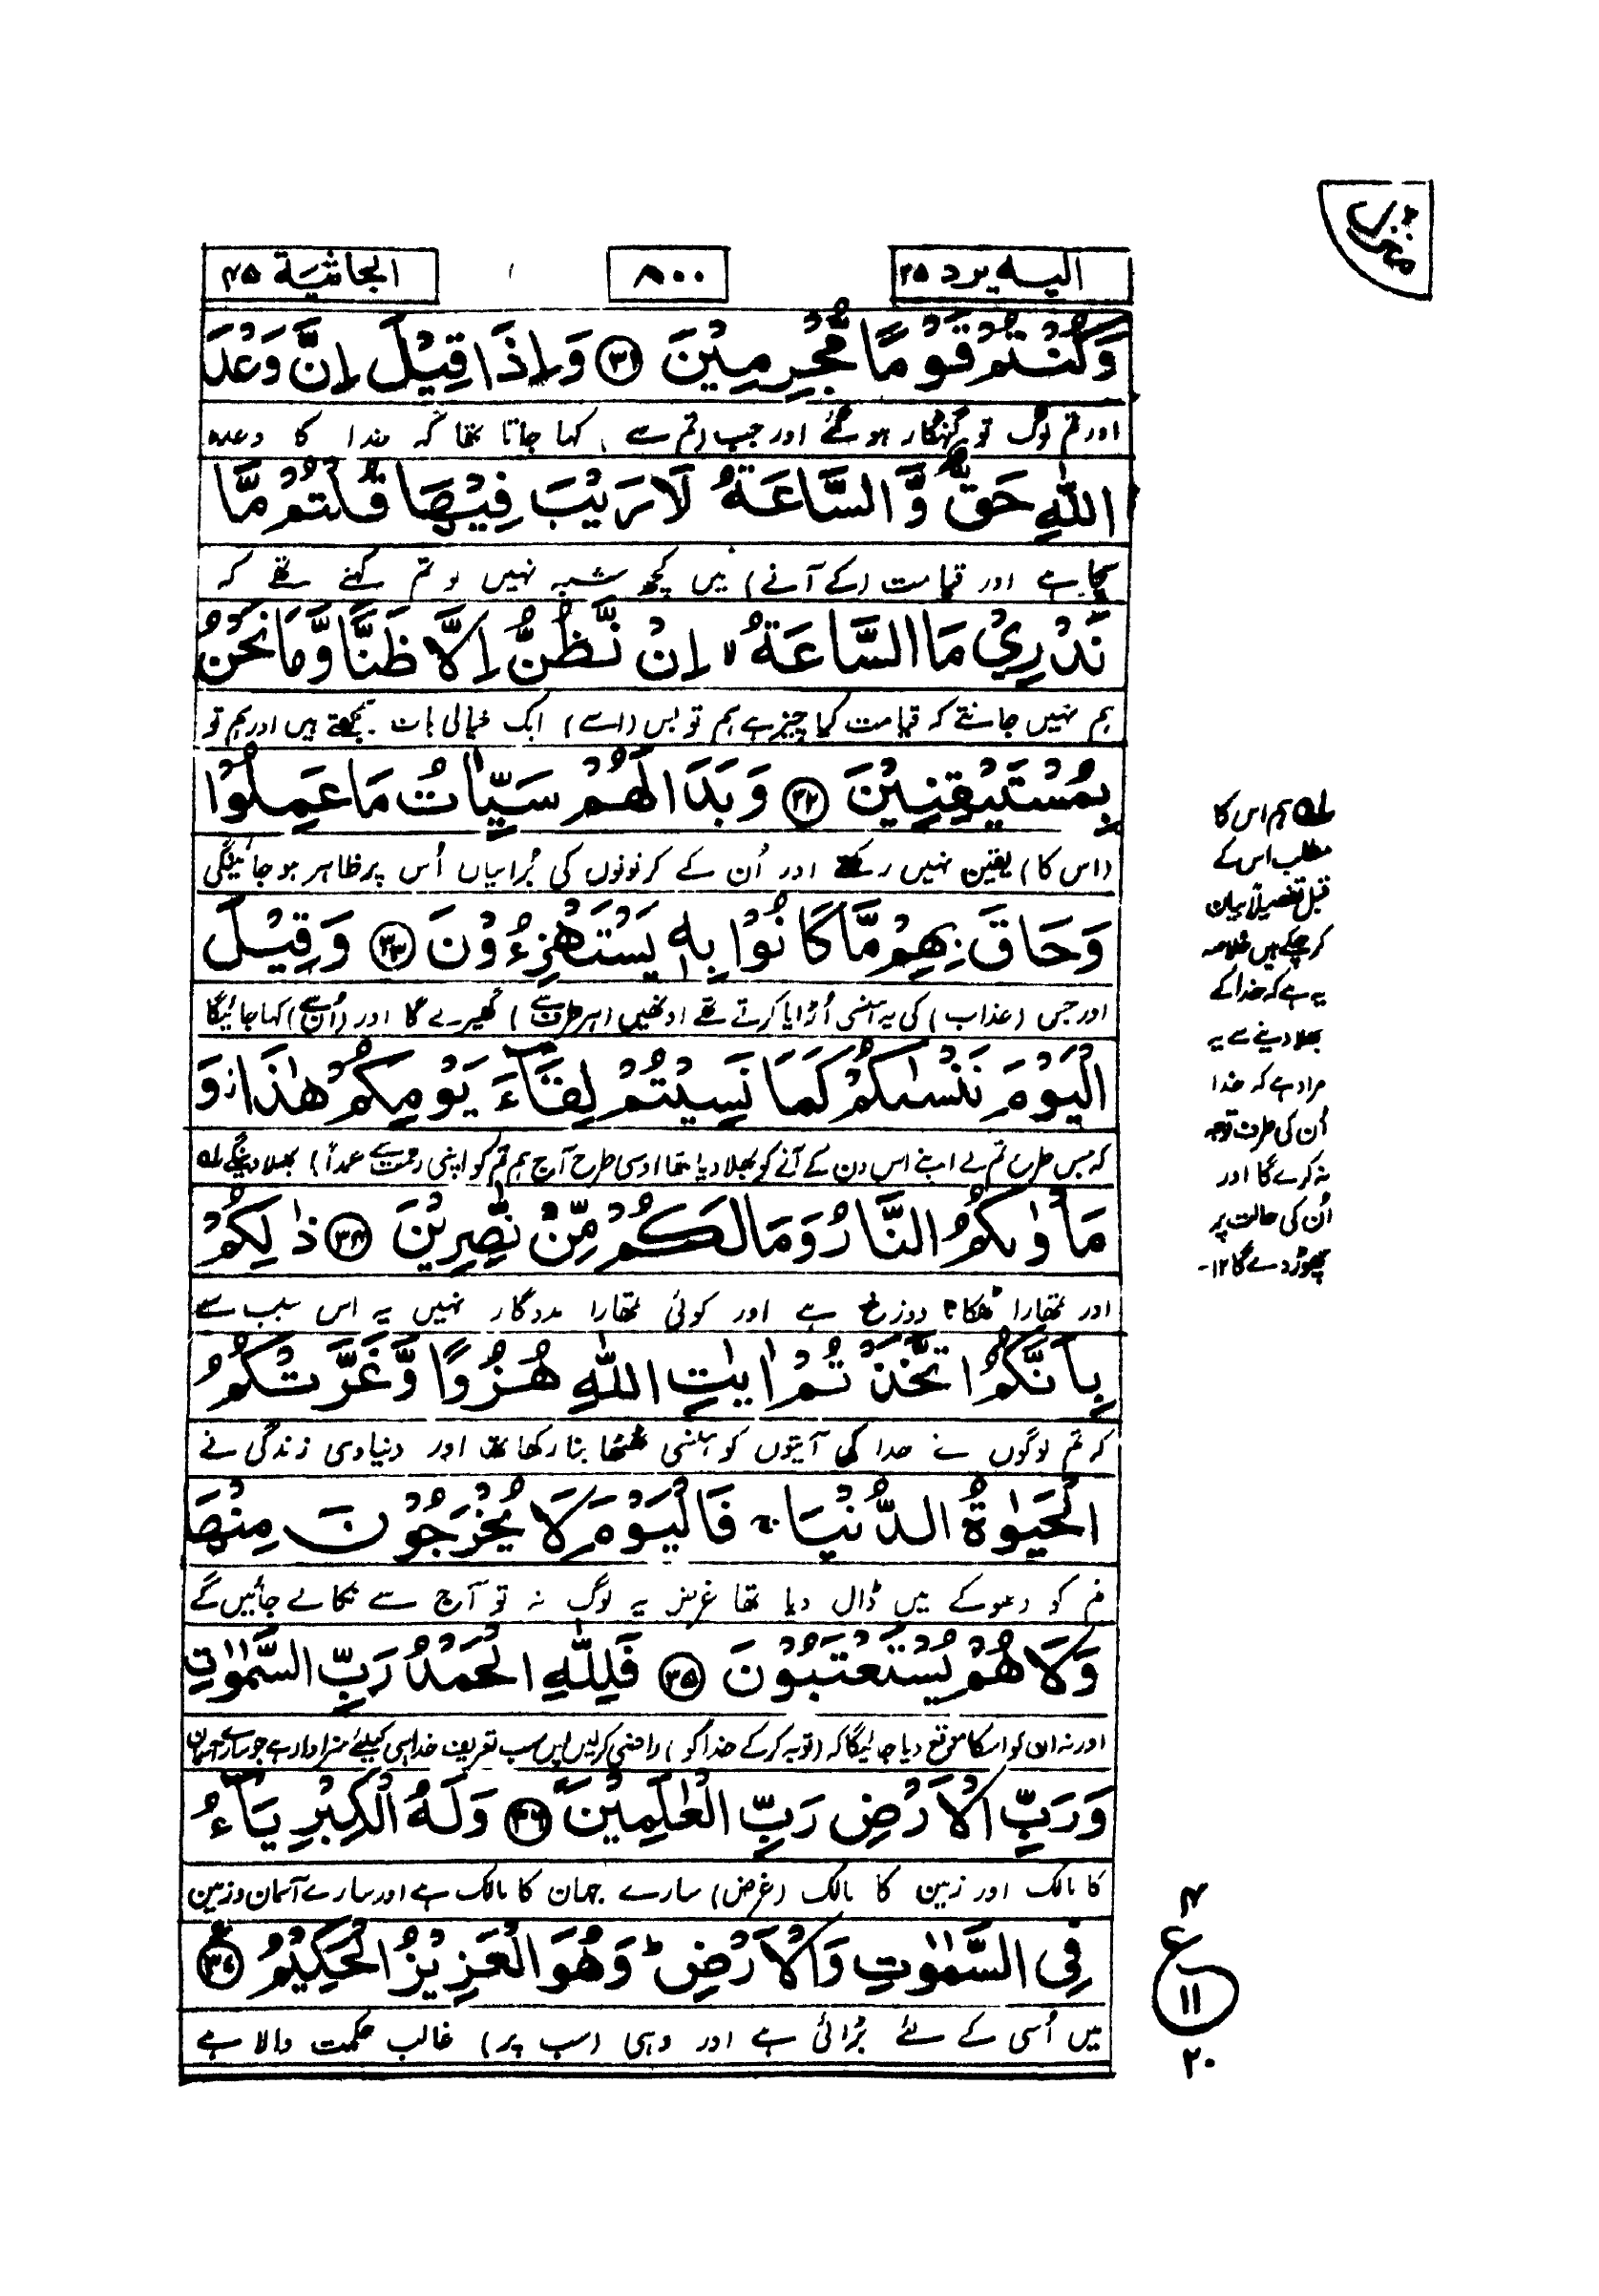 الیہ یرد ۲۵
۸۰۰
الجاثیة ۴۵
وَكُنْتُمْ قَوْمًا مُّجْرِمِیْنَ ﴿۳۱﴾ وَاِذَا قِیْلَ اِنَّ وَعْدَ
اور تم لوگ تو گنہگار ہو گئے اور جب (تم سے) کہا جاتا تھا کہ خدا کا وعدہ
اللّٰهِ حَقٌّ وَّالسَّاعَةُ لَا رَیْبَ فِیْهَا قُلْتُمْ مَّا
سچا ہے اور قیامت (کے آنے) میں کچھ شبہ نہیں تو تم کہتے تھے کہ
نَدْرِیْ مَا السَّاعَةُ ۙ اِنْ نَّظُنُّ اِلَّا ظَنًّا وَّمَا نَحْنُ
ہم نہیں جانتے کہ قیامت کیا چیز ہے ہم تو بس (اسے) ایک خیالی بات سمجھتے ہیں اور ہم تو
بِمُسْتَیْقِنِیْنَ ﴿۳۲﴾ وَبَدَا لَهُمْ سَیِّاٰتُ مَا عَمِلُوْا
(اس کا) یقین نہیں رکھتے اور اُن کے کرتوتوں کی بُرائیاں اُس پر ظاہر ہو جائینگی
وَحَاقَ بِهِمْ مَّا كَانُوْا بِهٖ یَسْتَهْزِءُوْنَ ﴿۳۳﴾ وَقِیْلَ
اور جس (عذاب) کی یہ ہنسی اُڑایا کرتے تھے اونھیں (ہر طرف سے) گھیرے گا اور (اُن سے) کہا جائیگا
الْیَوْمَ نَنْسٰىكُمْ كَمَا نَسِیْتُمْ لِقَآءَ یَوْمِكُمْ هٰذَا وَ
کہ جس طرح تم نے اپنے اس دن کے آنے کو بھلا دیا تھا اوسی طرح آج ہم تم کو اپنی رحمت سے عمداً) بھلا دینگے ۵۱
مَاْوٰىكُمُ النَّارُ وَمَا لَكُمْ مِّنْ نّٰصِرِیْنَ ﴿۳۴﴾ ذٰلِكُمْ
اور تمھارا ٹھکانا دوزخ ہے اور کوئی تمھارا مددگار نہیں یہ اس سبب سے
بِاَنَّكُمُ اتَّخَذْتُمْ اٰیٰتِ اللّٰهِ هُزُوًا وَّغَرَّتْكُمُ
کہ تم لوگوں نے خدا کی آیتوں کو ہنسی ٹھٹھا بنا رکھا تھا اور دنیاوی زندگی نے
الْحَیٰوةُ الدُّنْیَا ۚ فَالْیَوْمَ لَا یُخْرَجُوْنَ مِنْهَا
تم کو دھوکے میں ڈال دیا تھا غرض یہ لوگ نہ تو آج سے نکالے جائیں گے
وَلَا هُمْ یُسْتَعْتَبُوْنَ ﴿۳۵﴾ فَلِلّٰهِ الْحَمْدُ رَبِّ السَّمٰوٰتِ
اور نہ ان کو اسکا موقع دیا جائیگا کہ (توبہ کرکے خدا کو) راضی کرلیں پس سب تعریف خدا ہی کیلئے سزاوار ہے جو سارے آسمان
وَرَبِّ الْاَرْضِ رَبِّ الْعٰلَمِیْنَ ﴿۳۶﴾ وَلَهُ الْكِبْرِیَآءُ
کا مالک اور زمین کا مالک (غرض) سارے جہان کا مالک ہے اور سارے آسمان و زمین
فِی السَّمٰوٰتِ وَالْاَرْضِ ؕ وَهُوَ الْعَزِیْزُ الْحَكِیْمُ ﴿۳۷﴾
میں اُسی کے لئے بڑائی ہے اور وہی (سب پر) غالب حکمت والا ہے
۵۱ ہم اس کا
مطلب اس کے
قبل تفصیلاً بیان
کر چکے ہیں خلاصہ
یہ ہے کہ خدا کے
بھلا دینے سے یہ
مراد ہے کہ خدا
اُن کی طرف توجہ
نہ کرے گا اور
اُن کی حالت پر
چھوڑ دے گا ۱۲-
۴
ع
۱۱
۲۰